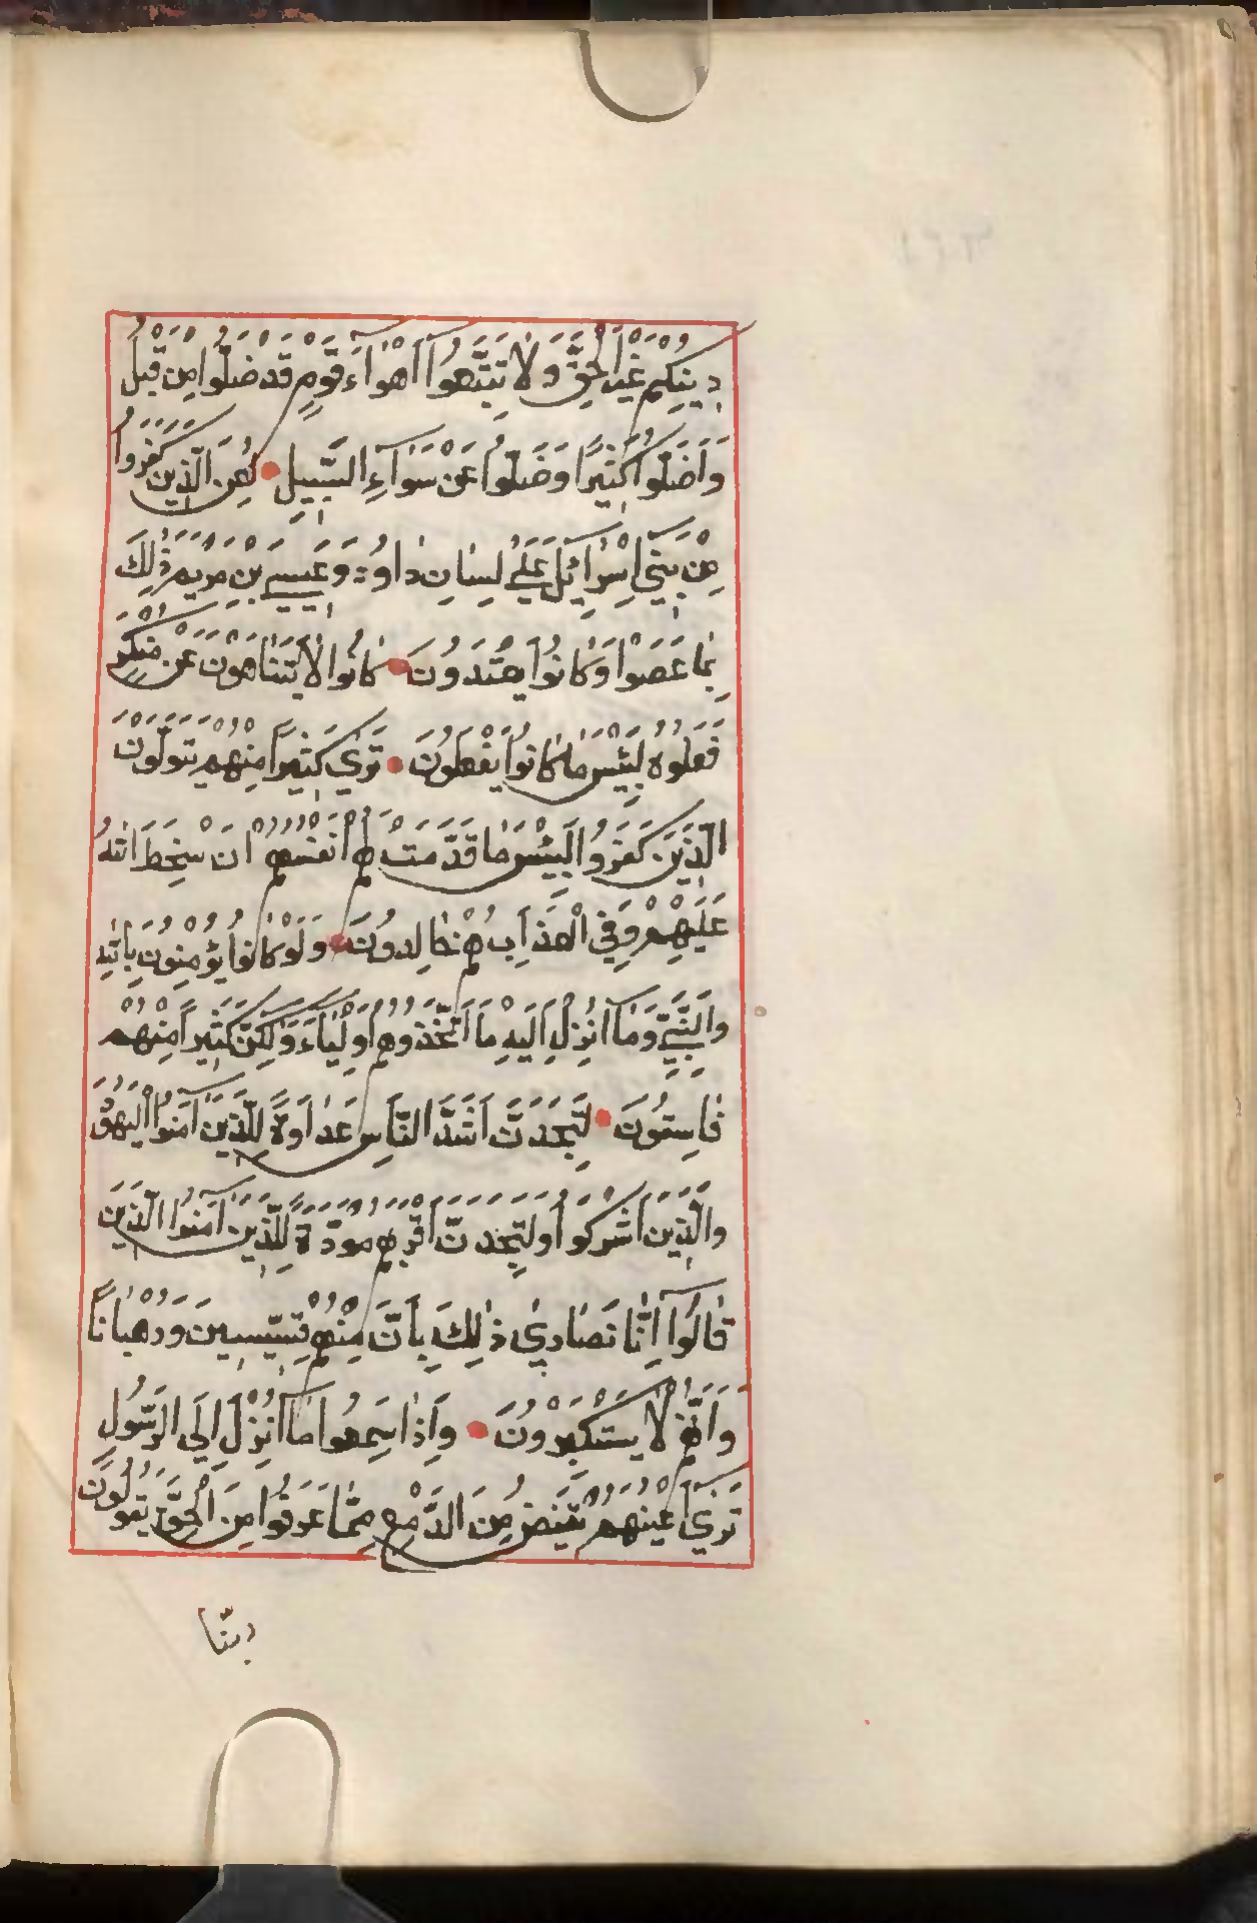 دِينِكُمْ غَيْرَ الْحَقِّ وَلَا تَتَّبِعُوا أَهْوَآءَ قَوْمٍ قَدْ ضَلُّوا مِنْ قَبْلُ
وَأَضَلُّوا كَثِيرًا وَضَلُّوا عَنْ سَوَآءِ السَّبِيلِ لُعِنَ الَّذِينَ كَفَرُوا
مِنْ بَنِي إِسْرَائِيلَ عَلَى لِسَانِ دَاوُدَ وَعِيسَى بْنِ مَرْيَمَ ذٰلِكَ
بِمَا عَصَوْا وَكَانُوا يَعْتَدُونَ كَانُوا لَا يَتَنَاهَوْنَ عَنْ مُنْكَرٍ
فَعَلُوهُ لَبِئْسَ مَا كَانُوا يَفْعَلُونَ تَرَى كَثِيرًا مِنْهُمْ يَتَوَلَّوْنَ
الَّذِينَ كَفَرُوا لَبِئْسَ مَا قَدَّمَتْ لَهُمْ أَنْفُسُهُمْ أَنْ سَخِطَ اللّٰهُ
عَلَيْهِمْ وَفِي الْعَذَابِ هُمْ خَالِدُونَ وَلَوْ كَانُوا يُؤْمِنُونَ بِاللّٰهِ
وَالنَّبِيِّ وَمَآ أُنْزِلَ إِلَيْهِ مَا اتَّخَذُوهُمْ أَوْلِيَآءَ وَلٰكِنَّ كَثِيرًا مِنْهُمْ
فَاسِقُونَ لَتَجِدَنَّ أَشَدَّ النَّاسِ عَدَاوَةً لِلَّذِينَ آمَنُوا الْيَهُودَ
وَالَّذِينَ أَشْرَكُوا وَلَتَجِدَنَّ أَقْرَبَهُمْ مَوَدَّةً لِلَّذِينَ آمَنُوا الَّذِينَ
قَالُوآ إِنَّا نَصَارَى ذٰلِكَ بِأَنَّ مِنْهُمْ قِسِّيسِينَ وَرُهْبَانًا
وَأَنَّهُمْ لَا يَسْتَكْبِرُونَ وَإِذَا سَمِعُوا مَآ أُنْزِلَ إِلَى الرَّسُولِ
تَرَى أَعْيُنَهُمْ تَفِيضُ مِنَ الدَّمْعِ مِمَّا عَرَفُوا مِنَ الْحَقِّ يَقُولُونَ
ربّنا